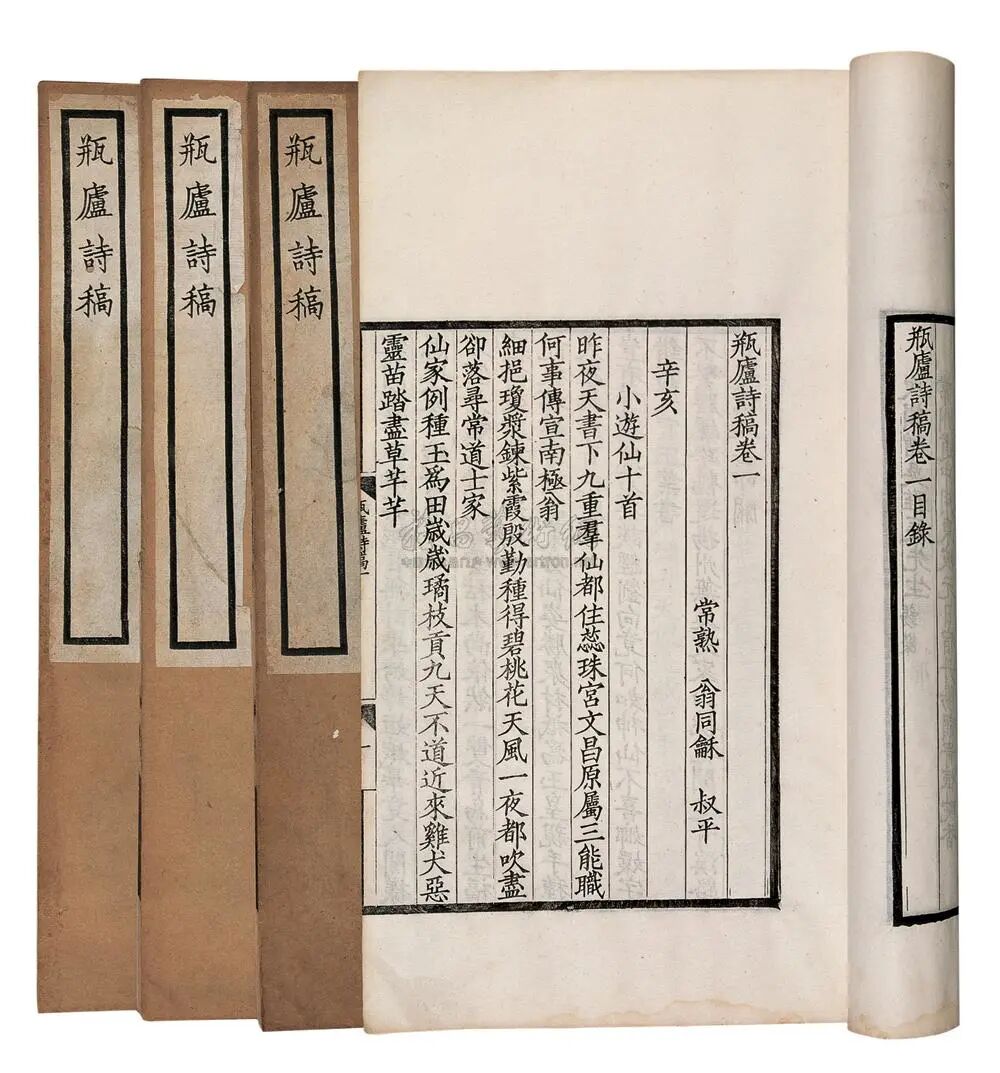 瓶廬詩稿卷一目錄
瓶廬詩稿卷一
常熟 翁同龢 叔平
辛亥
小遊仙十首
昨夜天書下九重羣仙都住蕊珠宮文昌原屬三能職
何事傳宣南極翁
細挹瓊漿鍊紫霞殷勤種得碧桃花天風一夜都吹盡
卻落尋常道士家
仙家例種玉爲田歲歲璚枝貢九天不道近來雞犬惡
靈苗踏盡草芊芊
瓶廬詩稿一
一
瓶廬詩稿
瓶廬詩稿
瓶廬詩稿